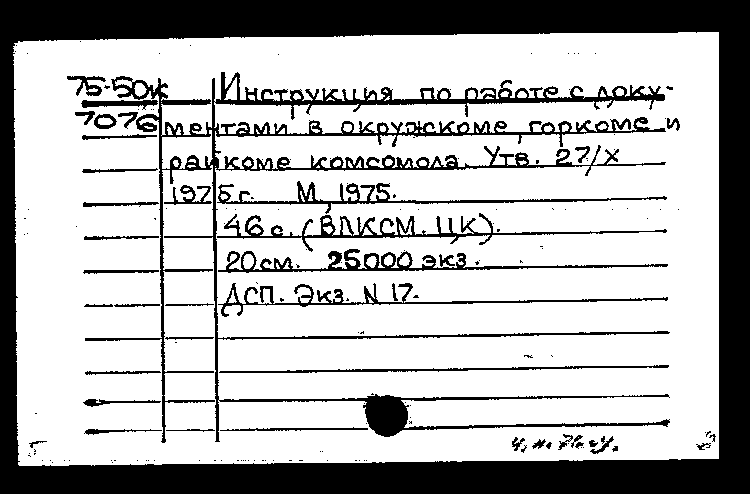 75-50ж Инструкция по работе с доку-
7076 ментами в окружкоме, горкоме и
райкоме комсомола. Утв. 27/X
1975 г. М, 1975.
46 с. (ВЛКСМ. ЦК).
20 см. 25000 экз.
ДСП. Экз. N 17.